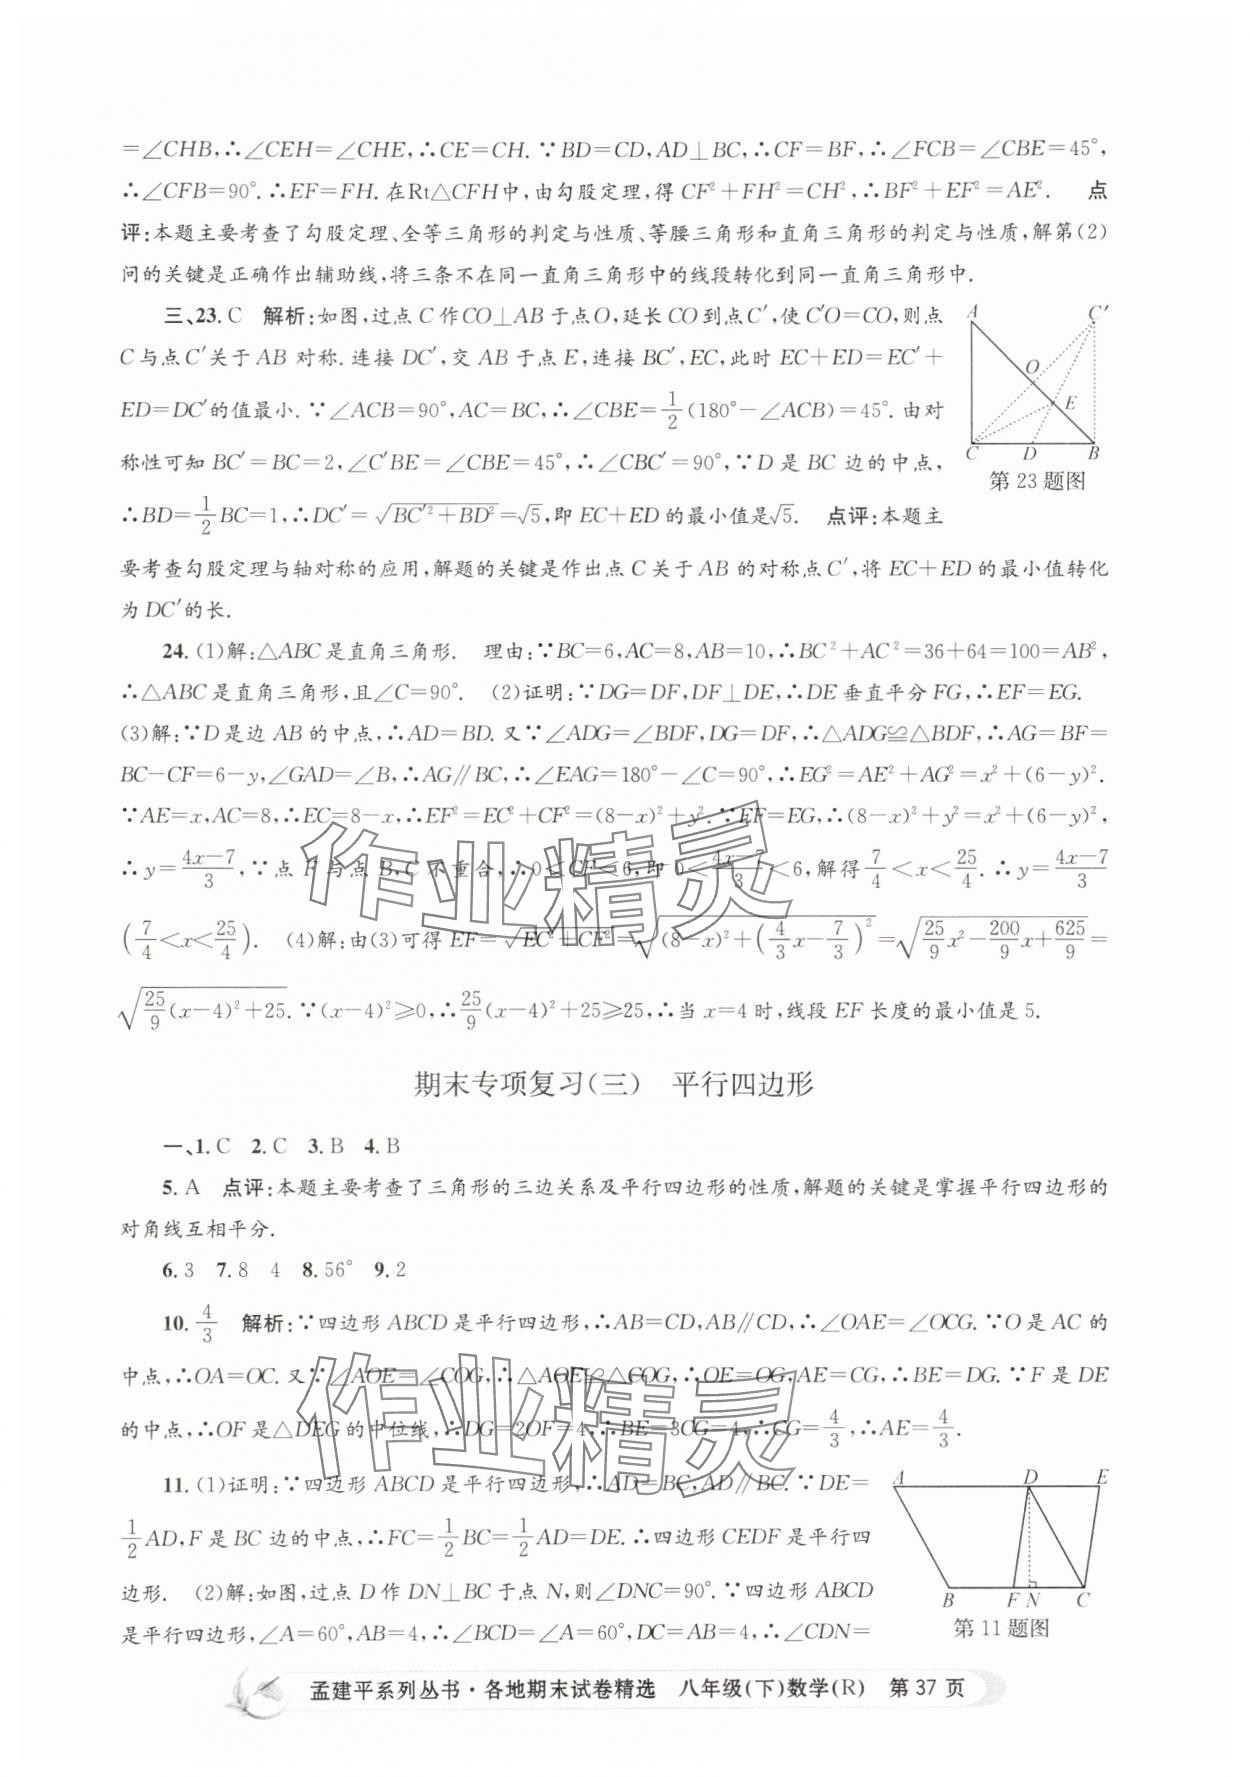 =∠CHB,∴∠CEH=∠CHE,∴CE=CH.∵BD=CD,AD⊥BC,∴CF=BF,∴∠FCB=∠CBE=45°,
∴∠CFB=90°.∴EF=FH.在Rt△CFH中,由勾股定理,得CF²+FH²=CH²,∴BF²+EF²=AE². 点
评:本题主要考查了勾股定理、全等三角形的判定与性质、等腰三角形和直角三角形的判定与性质,解第(2)
问的关键是正确作出辅助线,将三条不在同一直角三角形中的线段转化到同一直角三角形中.
三、23.C 解析:如图,过点C作CO⊥AB于点O,延长CO到点C′,使C′O=CO,则点
C与点C′关于AB对称.连接DC′,交AB于点E,连接BC′,EC,此时EC+ED=EC′+
ED=DC′的值最小.∵∠ACB=90°,AC=BC,∴∠CBE=1/2(180°-∠ACB)=45°.由对
称性可知BC′=BC=2,∠C′BE=∠CBE=45°,∴∠CBC′=90°,∵D是BC边的中点,
∴BD=1/2BC=1,∴DC′=√(BC′²+BD²)=√5,即EC+ED的最小值是√5. 点评:本题主
要考查勾股定理与轴对称的应用,解题的关键是作出点C关于AB的对称点C′,将EC+ED的最小值转化
为DC′的长.
A C′
O
E
C D B
第23题图
24.(1)解:△ABC是直角三角形. 理由:∵BC=6,AC=8,AB=10,∴BC²+AC²=36+64=100=AB²,
∴△ABC是直角三角形,且∠C=90°. (2)证明:∵DG=DF,DF⊥DE,∴DE垂直平分FG,∴EF=EG.
(3)解:∵D是边AB的中点,∴AD=BD.又∵∠ADG=∠BDF,DG=DF,∴△ADG≌△BDF,∴AG=BF=
BC-CF=6-y,∠GAD=∠B,∴AG∥BC,∴∠EAG=180°-∠C=90°,∴EG²=AE²+AG²=x²+(6-y)².
∵AE=x,AC=8,∴EC=8-x,∴EF²=EC²+CF²=(8-x)²+y².∵EF=EG,∴(8-x)²+y²=x²+(6-y)²,
∴y=(4x-7)/3,∵点F与点B,C不重合,∴0<CF<6,即0<(4x-7)/3<6,解得7/4<x<25/4.∴y=(4x-7)/3
(7/4<x<25/4). (4)解:由(3)可得EF=√(EC²+CF²)=√((8-x)²+(4/3x-7/3)²)=√(25/9x²-200/9x+625/9)=
√(25/9(x-4)²+25).∵(x-4)²≥0,∴25/9(x-4)²+25≥25,∴当x=4时,线段EF长度的最小值是5.
期末专项复习(三) 平行四边形
一、1.C 2.C 3.B 4.B
5.A 点评:本题主要考查了三角形的三边关系及平行四边形的性质,解题的关键是掌握平行四边形的
对角线互相平分.
6.3 7.8 4 8.56° 9.2
10.4/3 解析:∵四边形ABCD是平行四边形,∴AB=CD,AB∥CD,∴∠OAE=∠OCG.∵O是AC的
中点,∴OA=OC.又∵∠AOE=∠COG,∴△AOE≌△COG,∴OE=OG,AE=CG,∴BE=DG.∵F是DE
的中点,∴OF是△DEG的中位线,∴DG=2OF=4,∴BE=3CG=4,∴CG=4/3,∴AE=4/3.
11.(1)证明:∵四边形ABCD是平行四边形,∴AD=BC,AD∥BC.∵DE=
1/2AD,F是BC边的中点,∴FC=1/2BC=1/2AD=DE.∴四边形CEDF是平行四
边形. (2)解:如图,过点D作DN⊥BC于点N,则∠DNC=90°.∵四边形ABCD
是平行四边形,∠A=60°,AB=4,∴∠BCD=∠A=60°,DC=AB=4,∴∠CDN=
A D E
B F N C
第11题图
作业精灵
作业精灵
孟建平系列丛书·各地期末试卷精选 八年级(下)数学(R) 第37页